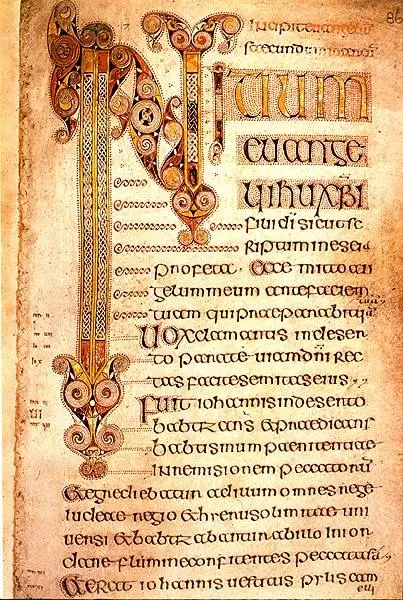 86
INITIUM
EUANGE
LII IHU XPI
filii di sicut sc
riptum in eseia
profeta ecce mitto an
gelum meum ante faciem
tuam qui praeparabit uiam
Uox clamantis in deser
to parate uiam dni rec
tas facite semitas eius
Fuit iohannis in deserto
babtizans et praedicans
babtismum paenitentiae
in remisionem peccatorū
et egrediebatur ad illum omnes
iudeae regio et hierusolimitae uni
uersi et babtizabantur ab illo in ior
dane flumine confitentes peccata sua
et erat iohannis uestitus pylis cam
eli